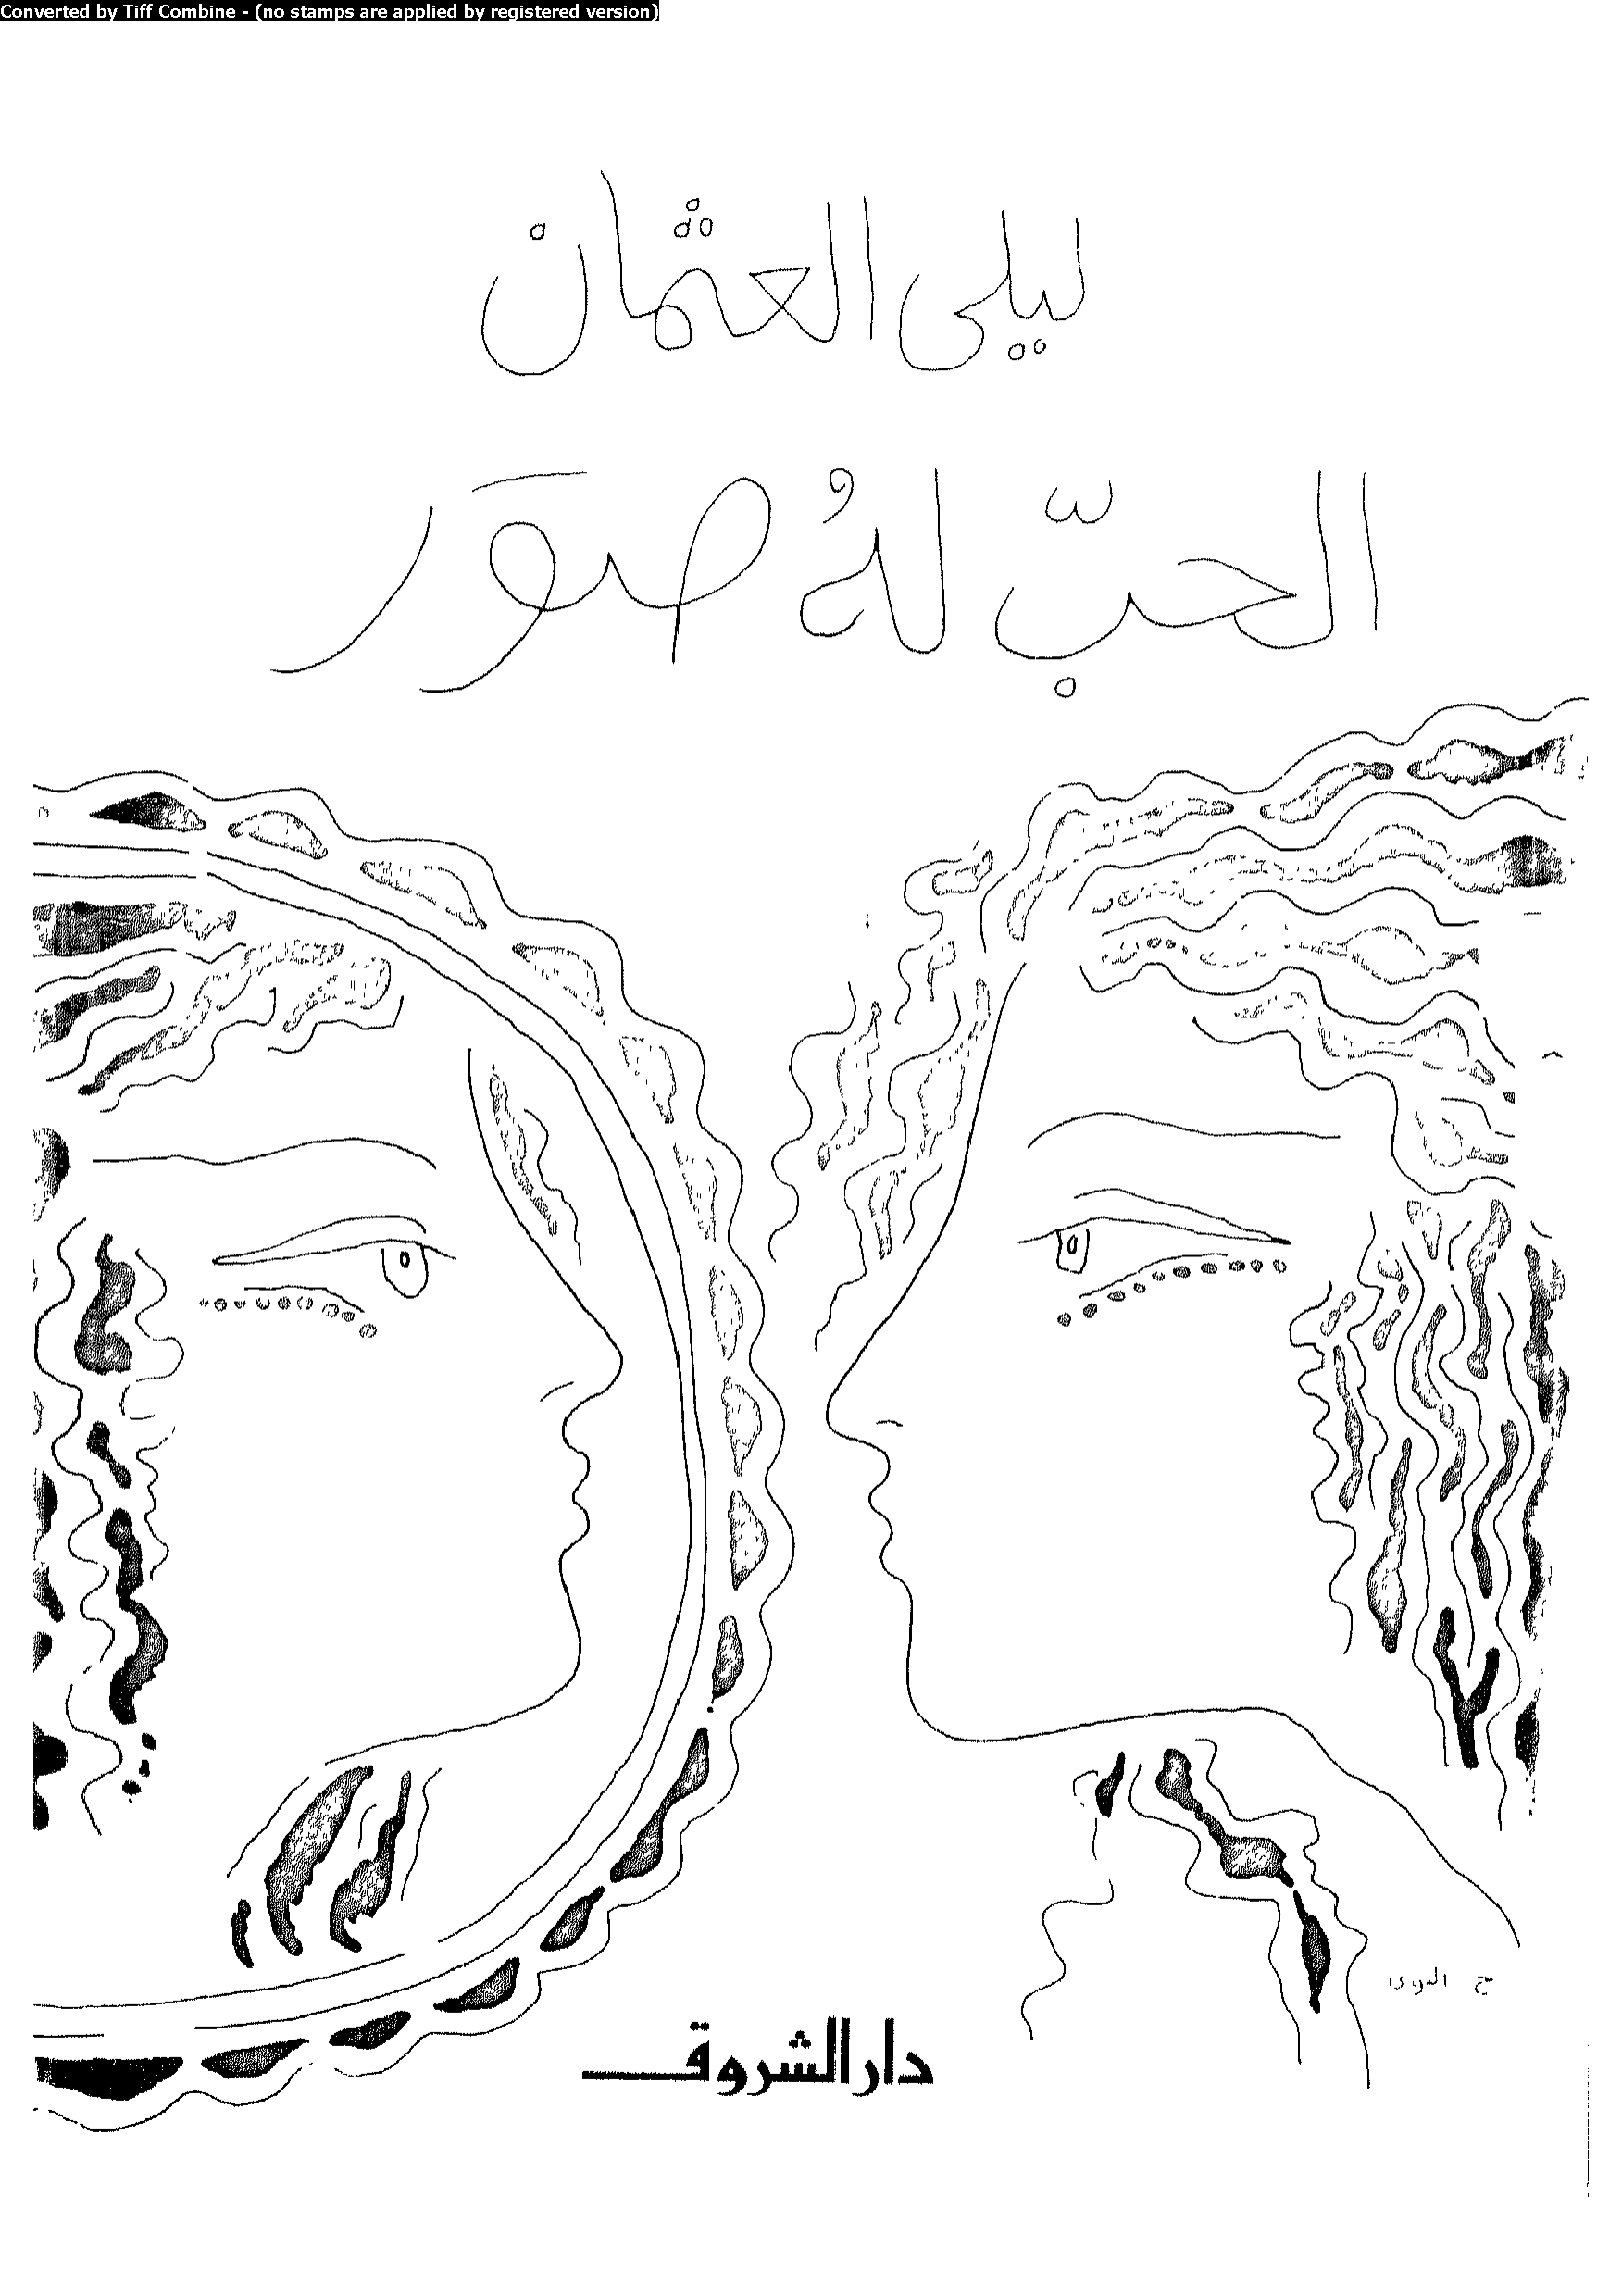 Converted by Tiff Combine - (no stamps are applied by registered version)
ليلى العثمان
الحبّ لهُ صوَر
دار الشروق